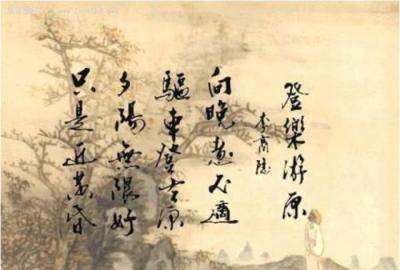 登樂游原
李商隐
向晚意不適
驅車登古原
夕陽無限好
只是近黃昏